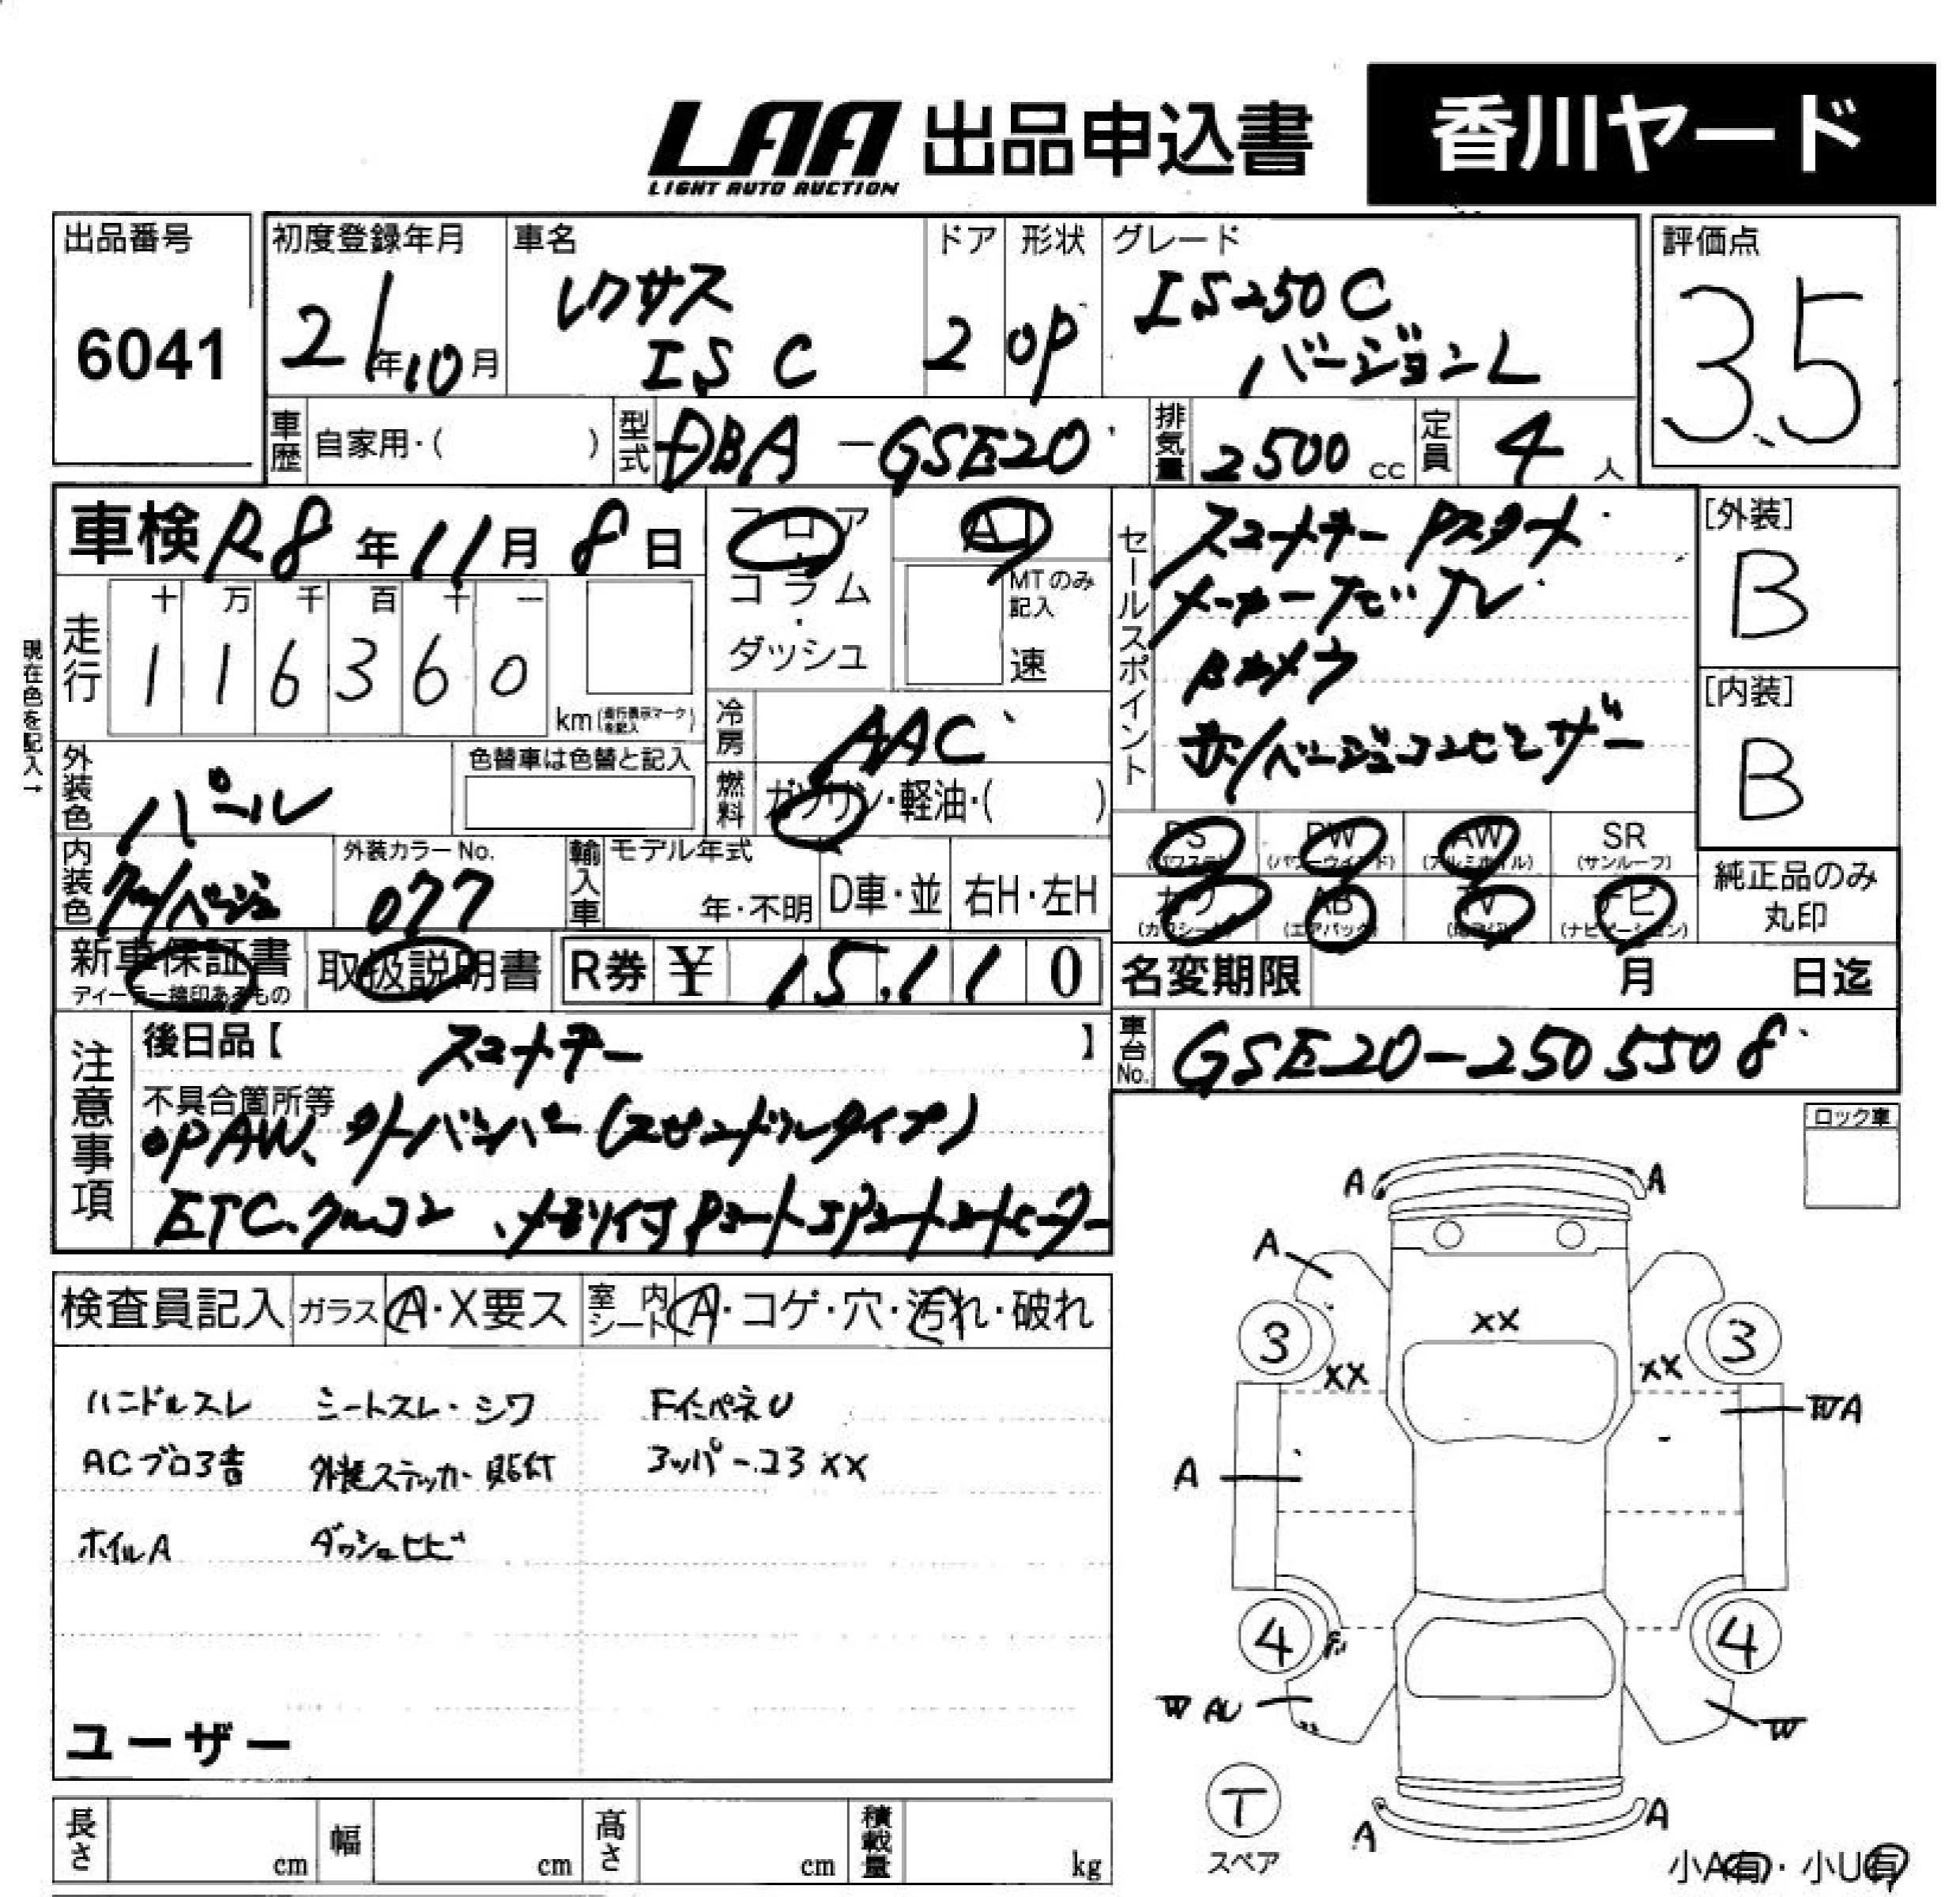 LAA 出品申込書 香川ヤード
LIGHT AUTO AUCTION
出品番号 初度登録年月 車名 ドア 形状 グレード 評価点
6041 21年10月 レクサス IS C 2 OP IS250C バージョンL 3.5
車歴 自家用・( ) 型式 DBA-GSE20 排気量 2500cc 定員 4人
車検 R8年11月8日 フロア・コラム・ダッシュ AT MTのみ記入 速
セールスポイント
スマートキー Pスタート
メーカーナビ・TV
Bカメラ
赤/ベージュコンビレザー
[外装] B
[内装] B
現在色を記入→
走行 十 万 千 百 十 一
116360 km(走行表示マークを記入)
冷房 AAC
外装色 パール 色替車は色替と記入 燃料 ガソリン・軽油・( )
内装色 ベージュ 外装カラーNo. 077 輸入車 モデル年式 年・不明 D車・並 右H・左H
PS(パワステ) PW(パワーウインド) AW(アルミホイル) SR(サンルーフ)
カワ(カワシート) AB(エアバック) TV ナビ(ナビゲーション)
純正品のみ丸印
新車保証書 ディーラー捺印あるもの 取扱説明書 R券 ¥ 15,110 名変期限 月 日迄
注意事項 後日品【 】 車台No. GSE20-2505508
不具合箇所等
OPAW、 バンパー(スピンドルタイプ)
ETC、クルコン、メモリ付Pシート シートヒーター
ロック車
検査員記入 ガラス A・X要ス 室内シート A・コゲ・穴・汚れ・破れ
ハンドルスレ シートスレ・シワ FインパネU
ACブロア音 外装ステッカー貼付 アッパーコアXX
ホイルA ダッシュヒビ
ユーザー
A A
A
XX
3 3
XX XX
WA
A
4 4
W AU W
T
スペア
A A
小A有・小U有
長さ cm 幅 cm 高さ cm 積載量 kg